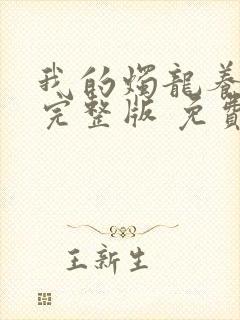 我的燭龍養
完整版 免費
王新生